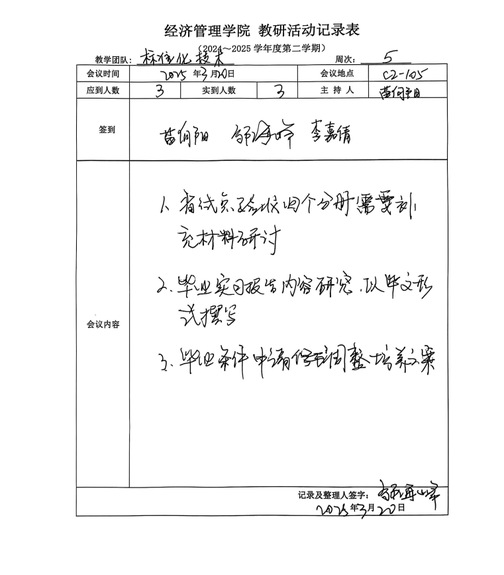 经济管理学院 教研活动记录表
(2024～2025 学年度第二学期)
教学团队: 标准化技术 周次: 5
会议时间 2025 年 3 月 20 日 会议地点 C2-105
应到人数 3 实到人数 3 主 持 人 苗向阳
签到 苗向阳 李嘉倩
会议内容
1. 省试点验收四个分册需要补
充材料研讨
2. 毕业实习报告内容研究，以毕文形
式撰写
3. 毕业条件申请 调整培养方案
记录及整理人签字:
2025 年 3 月 20 日